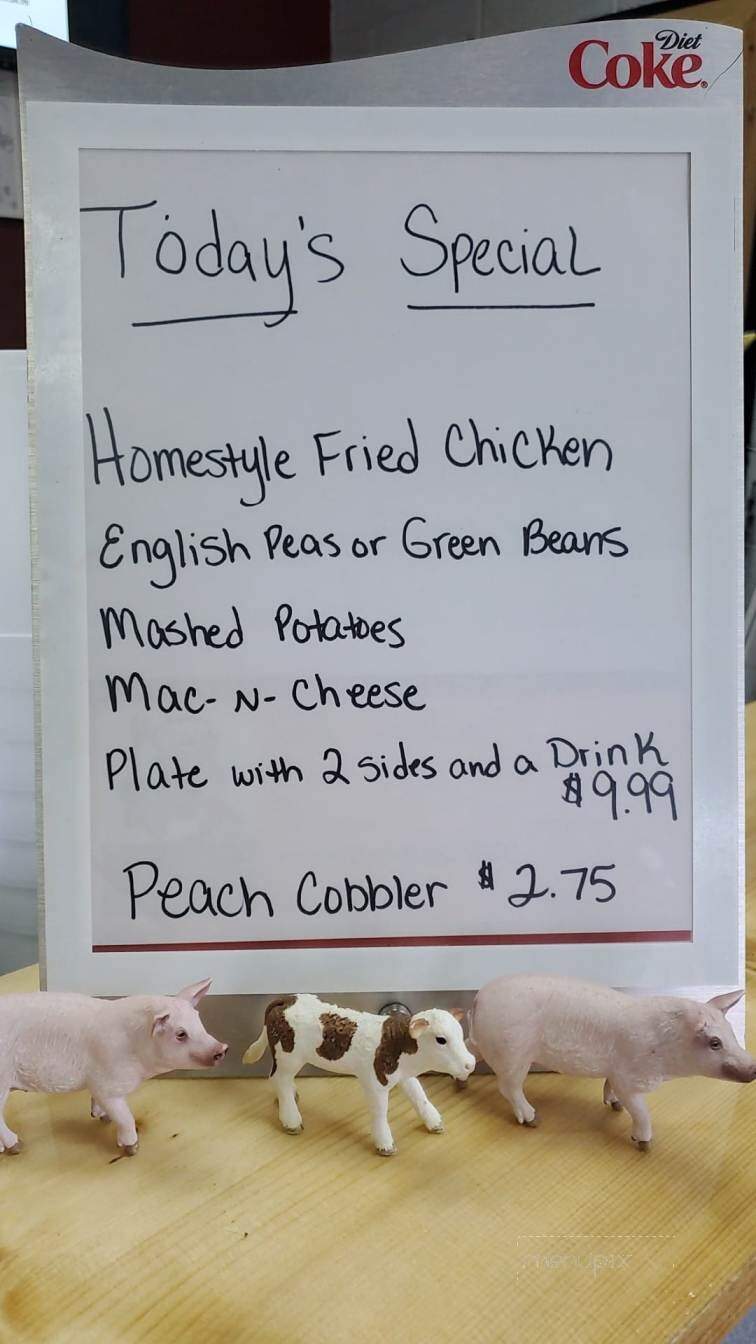 Diet
Coke
Today's Special
Homestyle Fried Chicken
English Peas or Green Beans
Mashed Potatoes
Mac-N-Cheese
Plate with 2 sides and a Drink
$9.99
Peach Cobbler $2.75
menupix